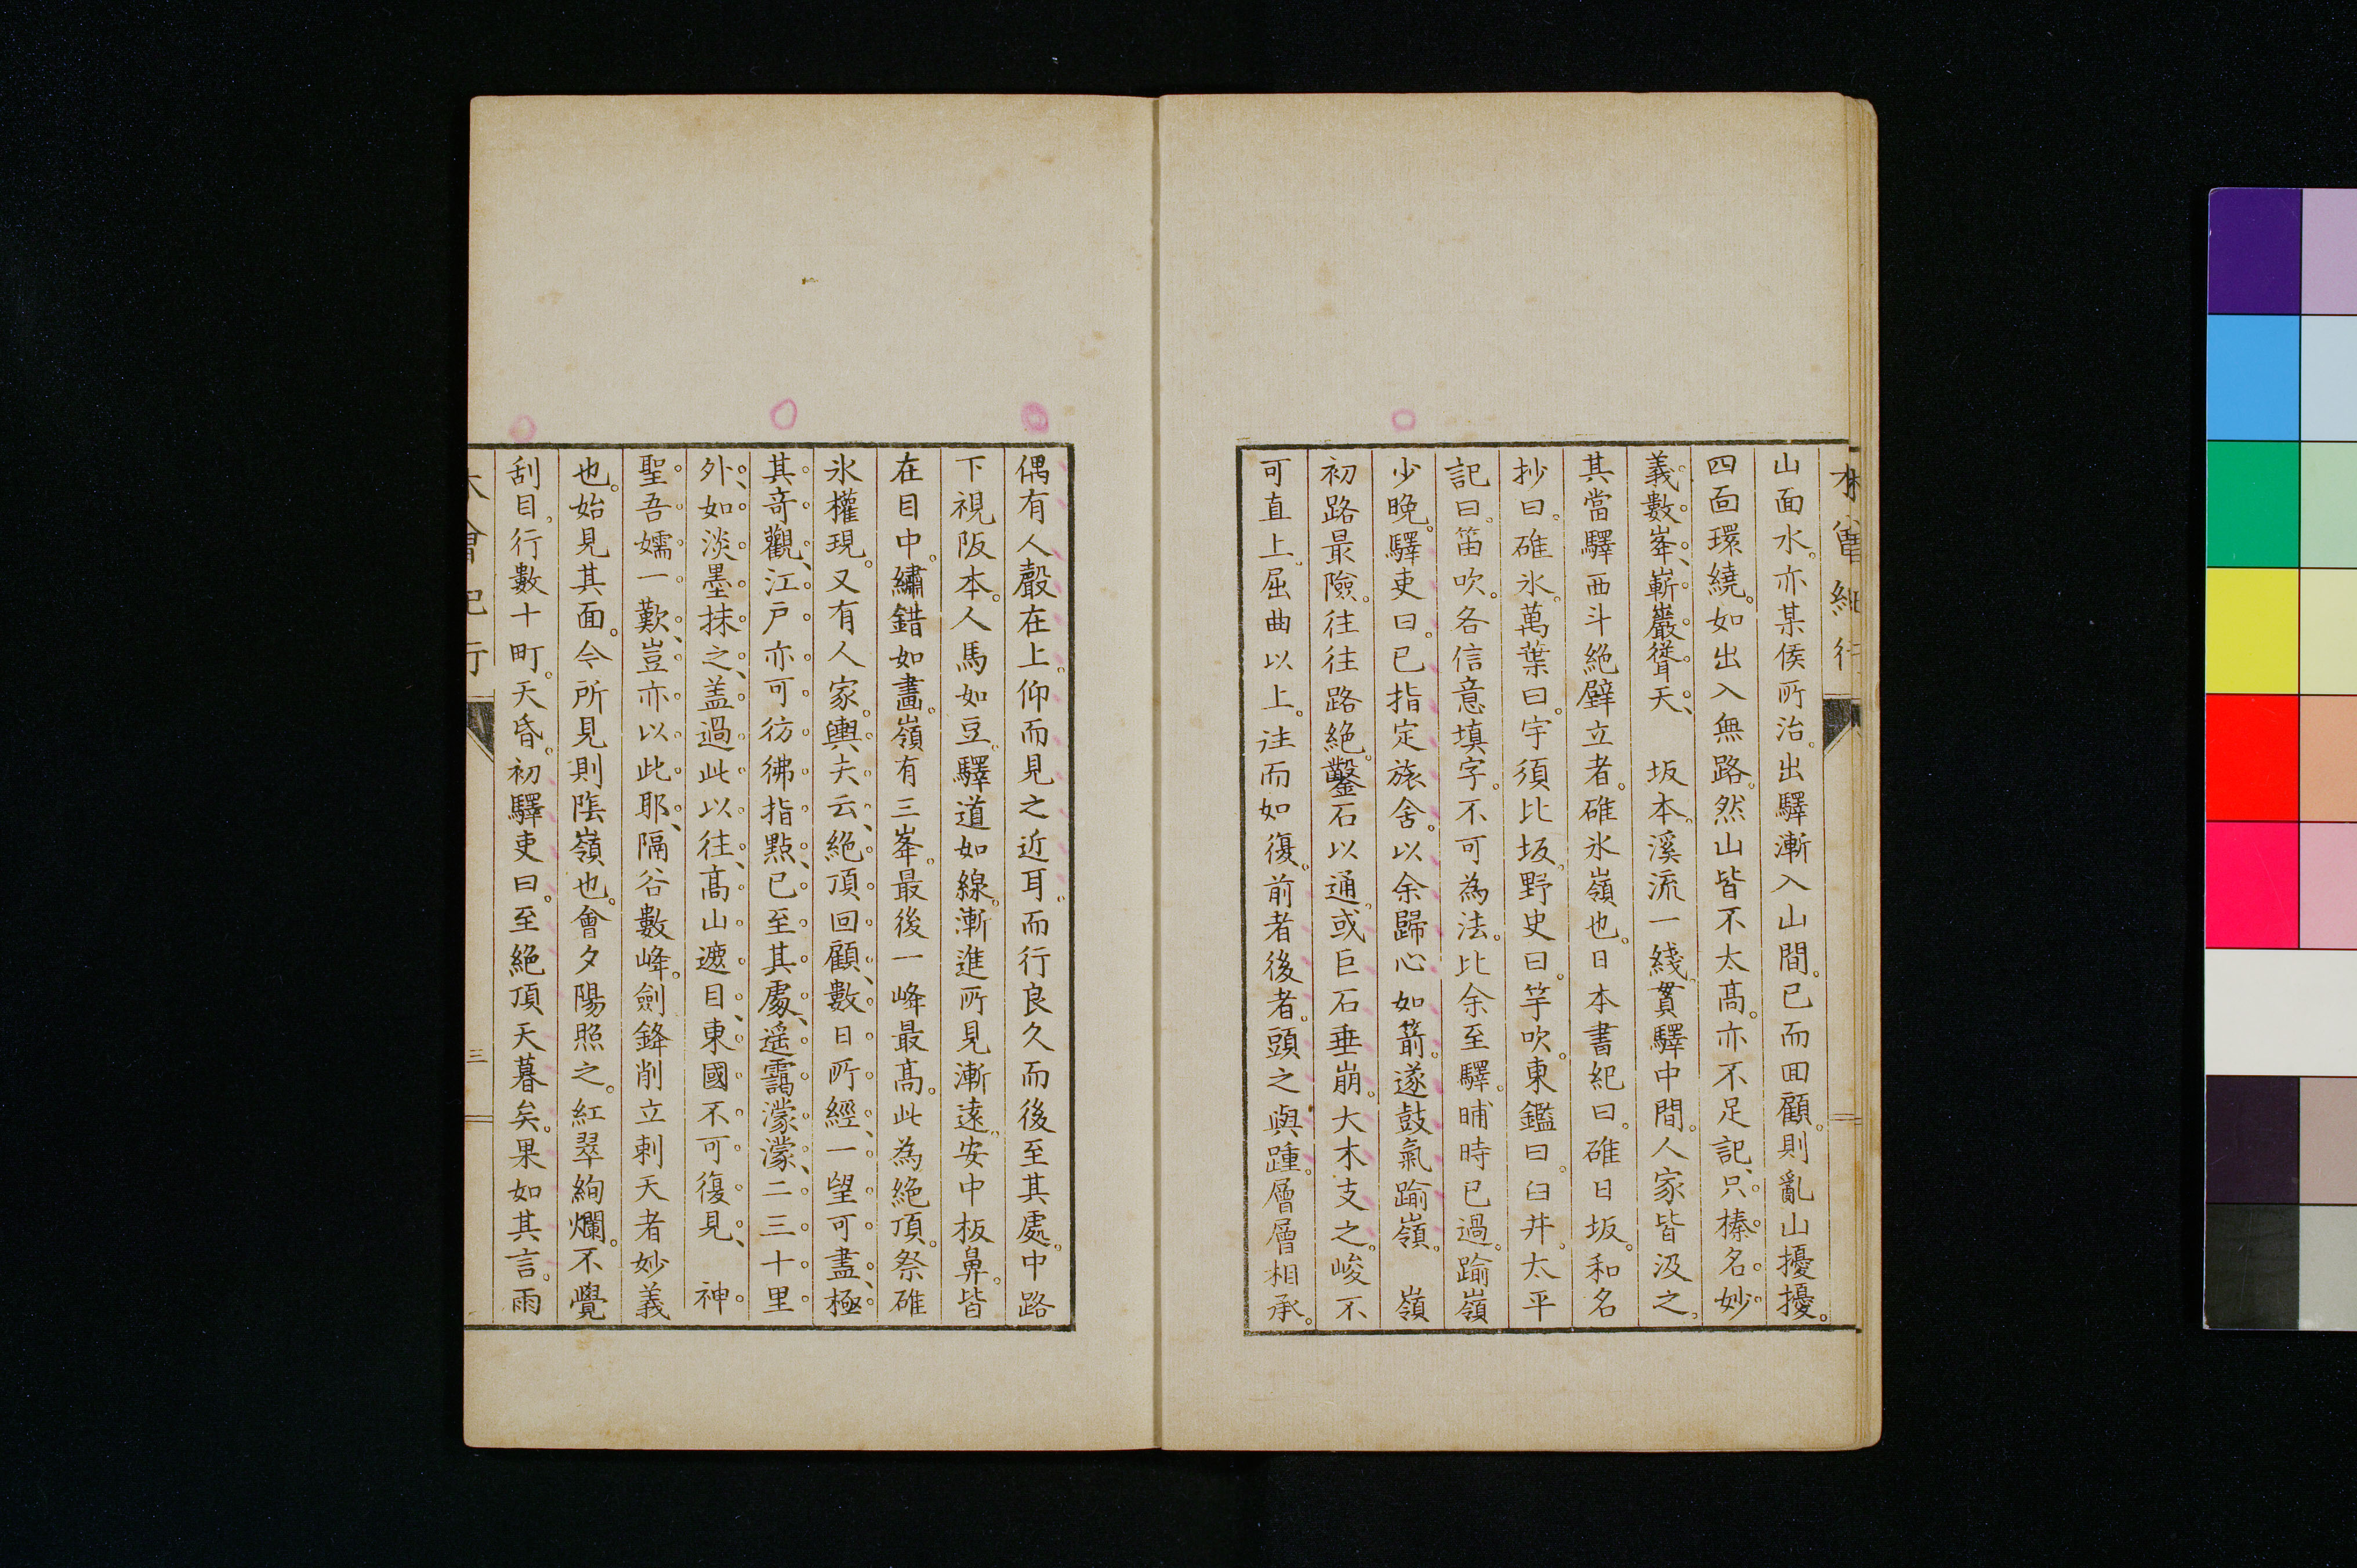 木曾紀行
山面水。亦某侯所治。出驛漸入山間。已而回顧。則亂山擾擾。
四面環繞。如出入無路。然山皆不太高。亦不足記、只榛名妙
義數峯、嶄巖聳天、 坂本。溪流一綫、貫驛中間。人家皆汲之。
其當驛西斗絕壁立者。碓氷嶺也。日本書紀曰。碓日坂。和名
抄曰。碓氷。萬葉曰。宇須比坂。野史曰。笇吹。東鑑曰。臼井。太平
記曰。笛吹。各信意填字。不可為法。比余至驛。晡時已過。踰嶺
少晚。驛吏曰。已指定旅舍。以余歸心如箭。遂鼓氣踰嶺。 嶺
初路最險。往往路絕。鑿石以通。或巨石垂崩。大木支之。峻不
可直上。屈曲以上。往而如復。前者後者。頭之與踵。層層相承。
偶有人聲在上。仰而見之近耳。而行良久而後至其處。中路
下視阪本。人馬如豆。驛道如線。漸進所見漸遠。安中板鼻。皆
在目中。繡錯如畫。嶺有三峯。最後一峰最高。此為絕頂。祭碓
氷權現。又有人家。輿夫云、絕頂回顧、數日所經、一望可盡、極
其奇觀、江戶亦可彷彿指點、已至其處、遙靄濛濛、二三十里
外、如淡墨抹之、盖過此以往、高山遮目、東國不可復見、 神
聖吾嬬一歎、豈亦以此耶、隔谷數峰。劍鋒削立刺天者妙義
也。始見其面。今所見則陰嶺也。會夕陽照之。紅翠絢爛。不覺
刮目。行數十町。天昏。初驛吏曰。至絕頂天暮矣。果如其言。雨
木曾紀行
三